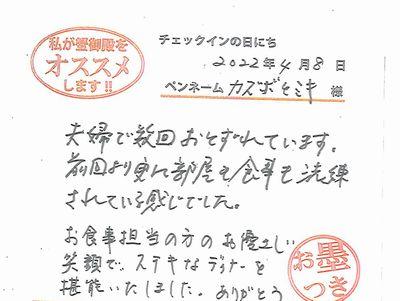 私が蟹御殿を
オススメ
します!!
チェックインの日にち
2022年4月8日
ペンネーム カズボとミキ 様
夫婦で数回おとずれています。
前回より更に部屋も食事も洗練
されている感じでした。
お食事担当の方のお優しい
笑顔で、ステキなディナーを
堪能いたしました。ありがとう
お墨
つき